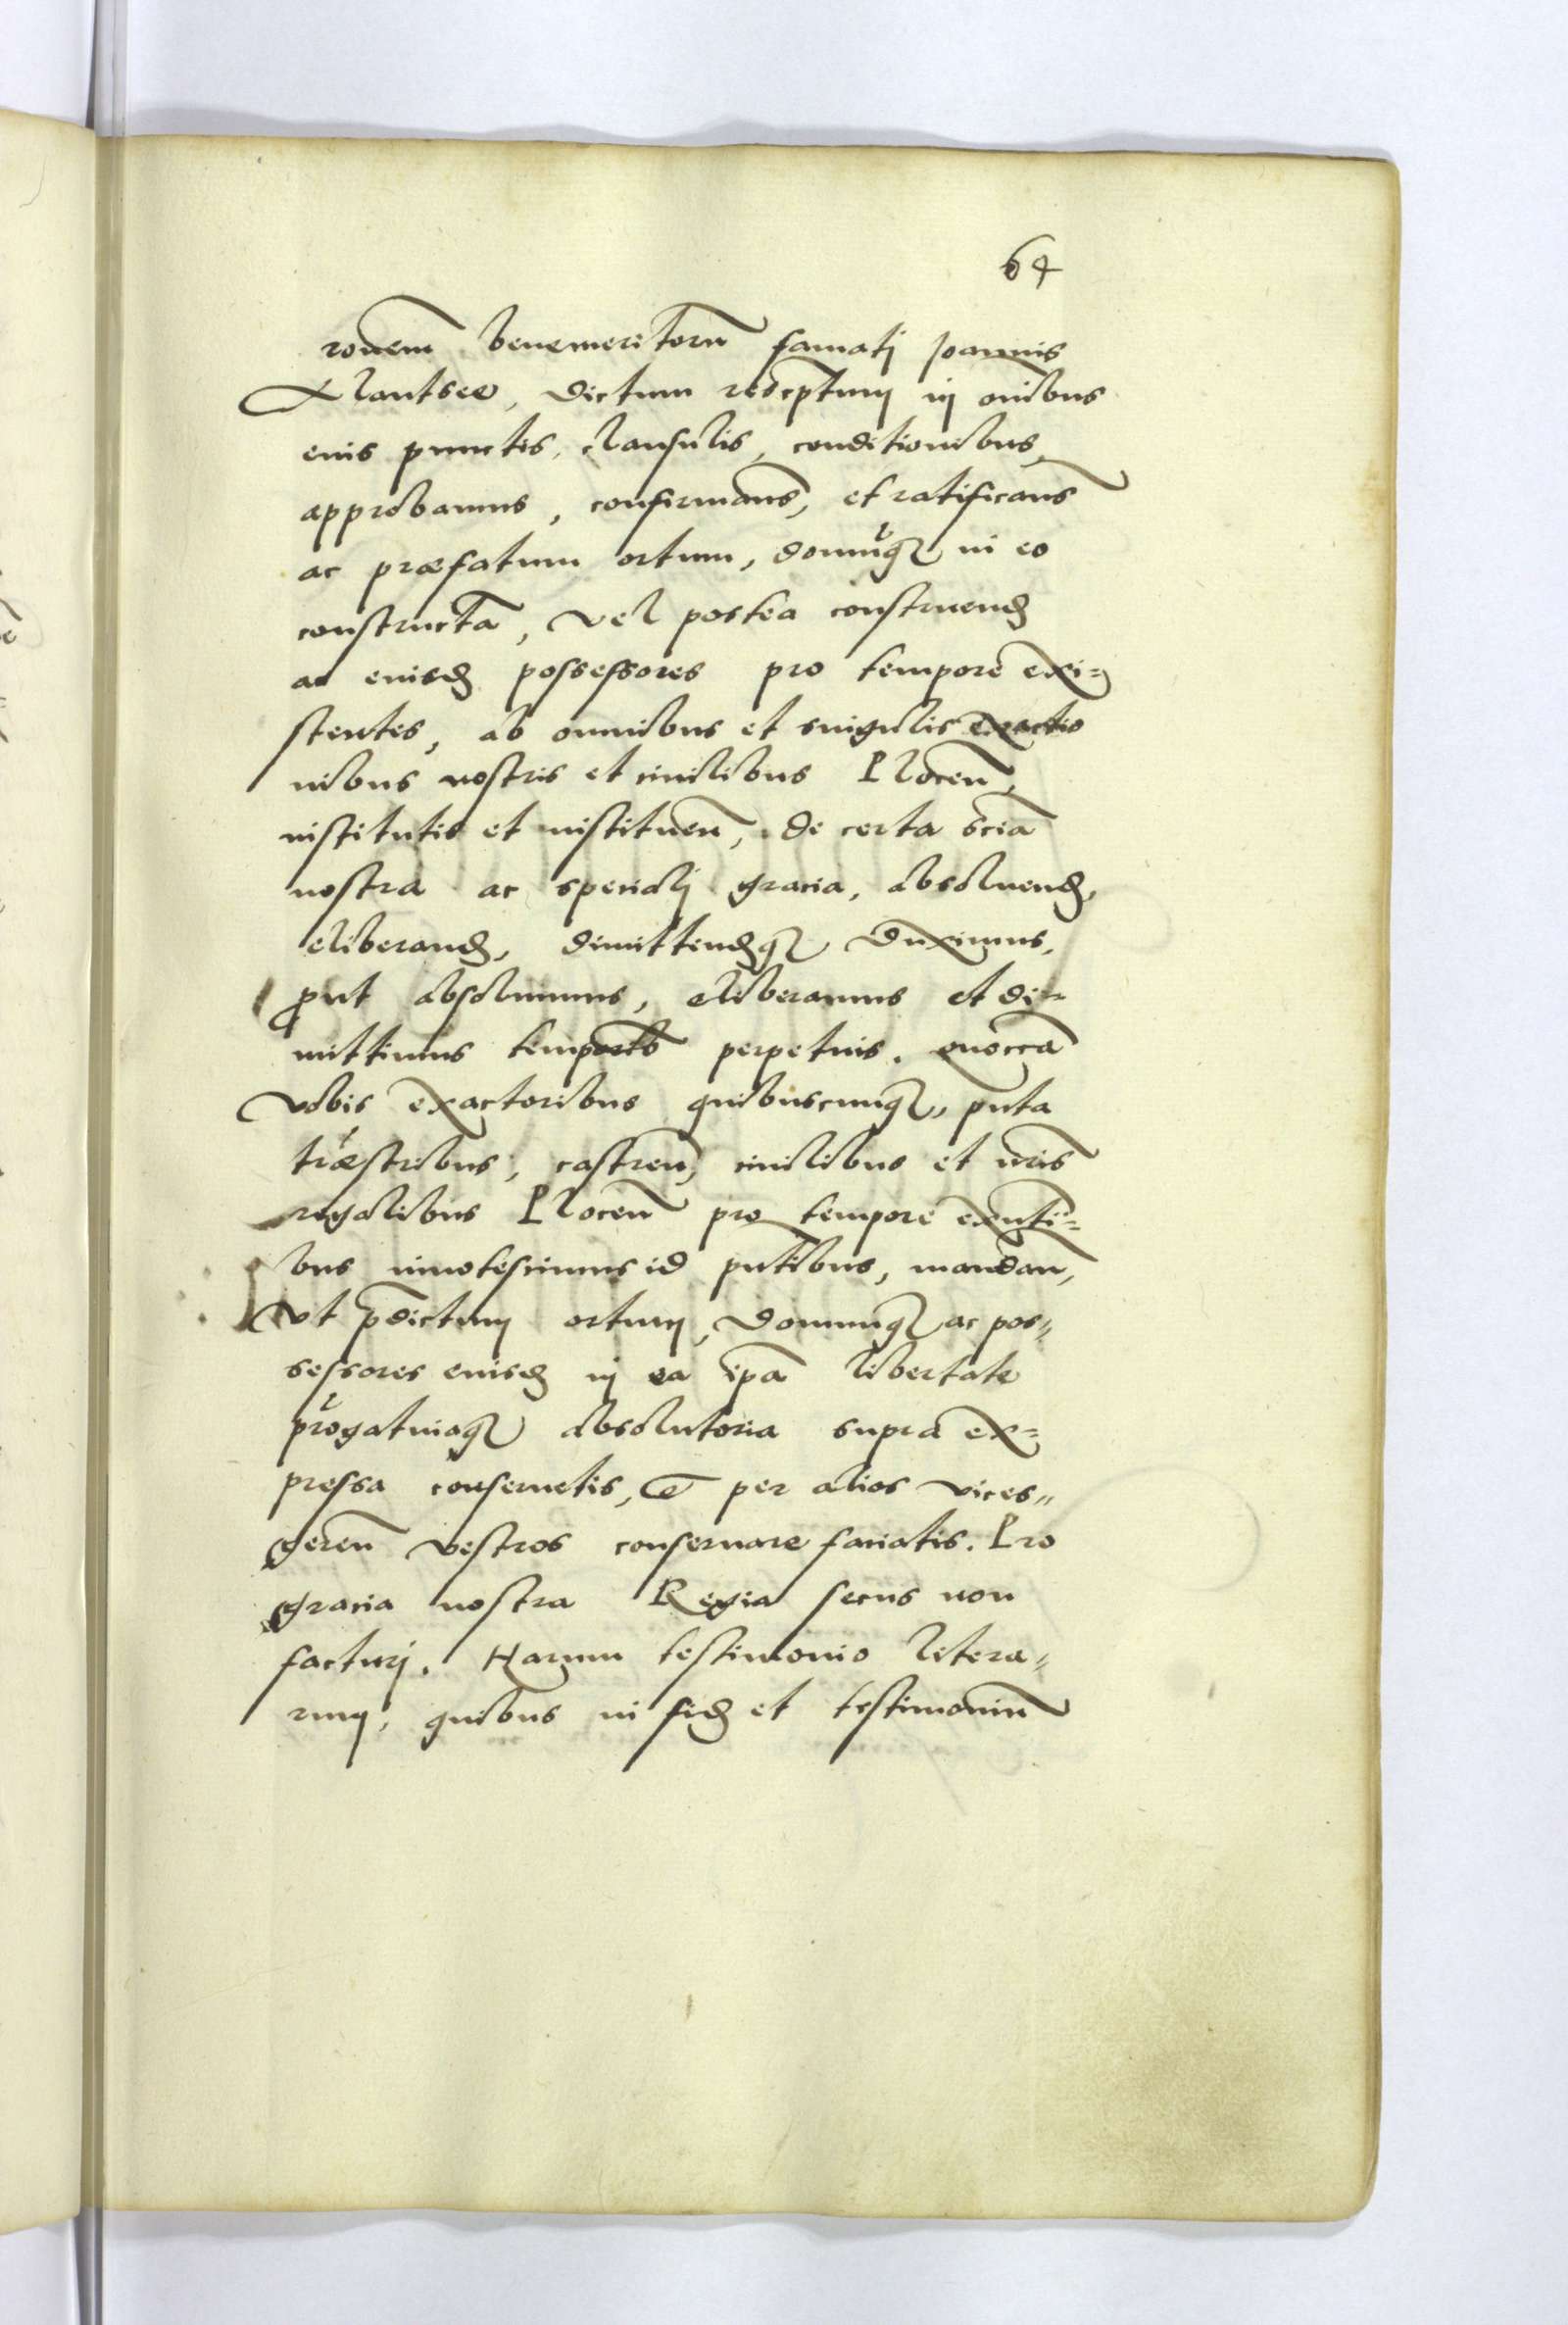 64
ronem benemeritorum famatj Joannis
Alantsee, dictum rescptum in oĩbus
eius punctis, clausulis, conditionibus,
approbamus, confirmams, et ratificams
ac præfatum ortum, domũq₃ in eo
constructã, vel postea construend
ac eiusd possessores pro tempore exi=
stentes, ab omnibus et singulis exactio
nibus nostris et ciuilibus Plocen̄,
institutis et instituen̄, de certa sciã
nostra ac specialj gracia, absoluend,
eliberand, dimittendq₃ duximus,
ꝓut absoluimus, eliberamus et di=
mittimus temporib perpetuis. quocca
vobis exactoribus quibuscunq₃, puta
tr̃æstribus, castren̄, ciuilibus et nr̃is
regalibus Plocen̄ pro tempore exñti=
bus innotescimus id pñtibus, mandan̄,
Vt p̃dictum ortum, domumq₃ ac pos„
sessores eiusd in ea ip̃a libertate
p̃rogatiuaq₃ absolutoria supra ex=
pressa conseruetis, & per alios vices„
geren̄ vestros conseruare faciatis. Pro
gracia nostra Regia secus non
facturj. Harum testimonio litera„
rum, quibus in fid et testimoniũ